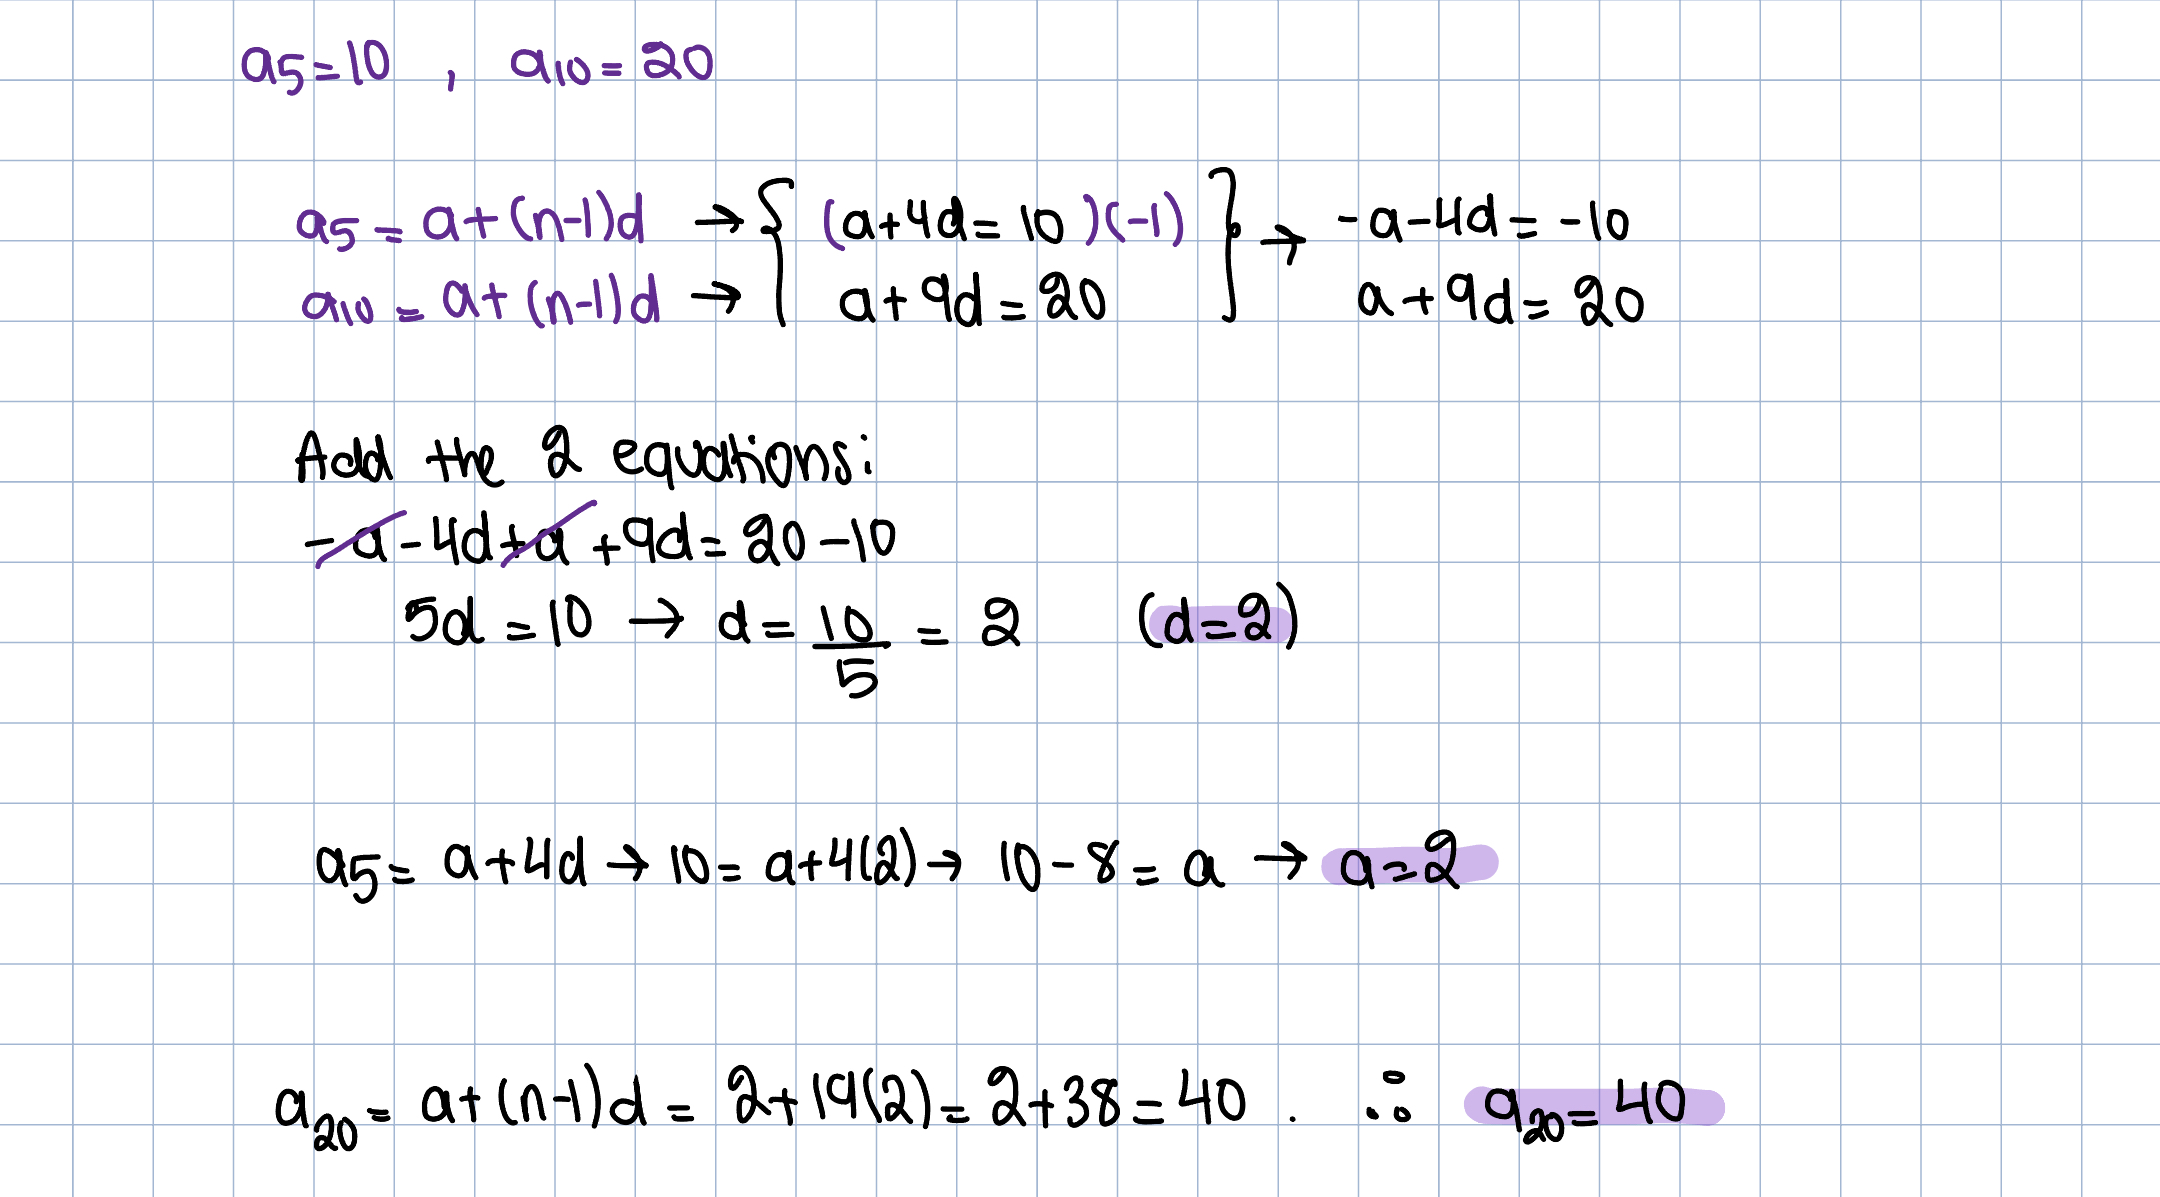 a5=10 , a10=20
a5=a+(n-1)d → { (a+4d=10)(-1) } → -a-4d=-10
a10=a+(n-1)d → { a+9d=20 } a+9d=20
Add the 2 equations:
-a-4d+a+9d=20-10
5d=10 → d=10/5=2 (d=2)
a5=a+4d → 10=a+4(2) → 10-8=a → a=2
a20=a+(n-1)d=2+19(2)=2+38=40. ∴ a20=40